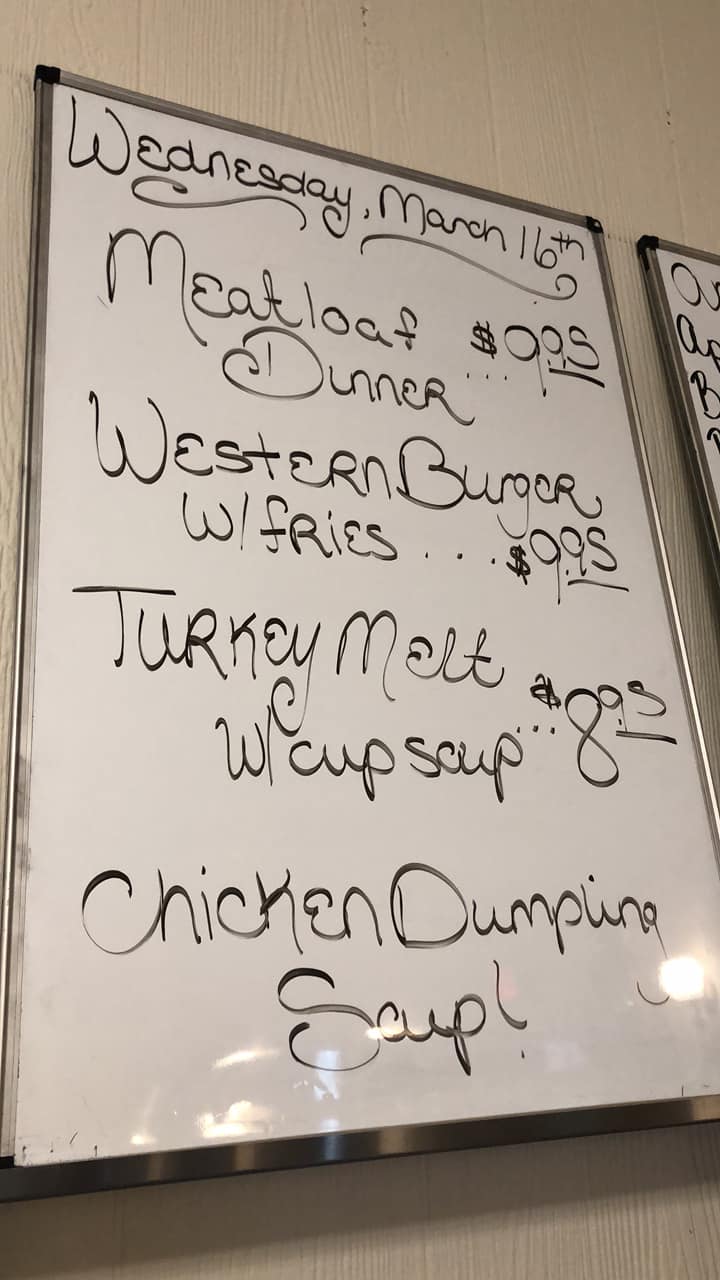 Wednesday, March 16th
Meatloaf $9.95
Dinner ...
Western Burger
w/ fries ... $9.95
Turkey Melt
w/ cup soup ... $8.95
Chicken Dumpling
Soup!